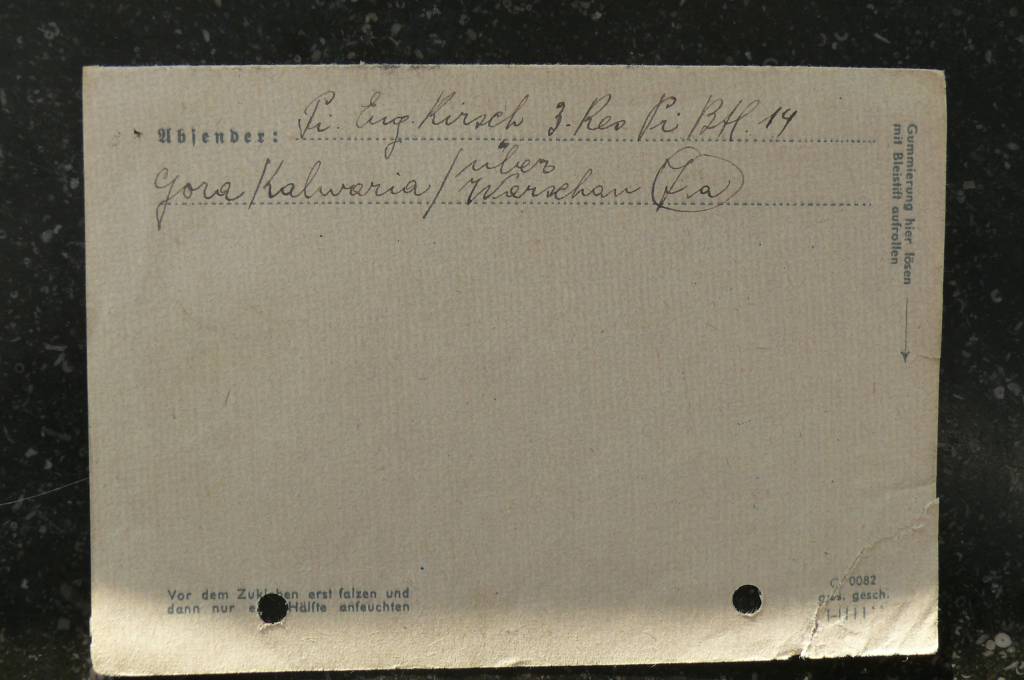 Absender: Pi. Eug. Kirsch 3. Res. Pi Btl. 14
Gora/Kalwaria/ über Warschau
Gummierung hier lösen
mit Bleistift aufrollen
Vor dem Zukleben erst falzen und
dann nur Hälfte anfeuchten
0082
ges. gesch.